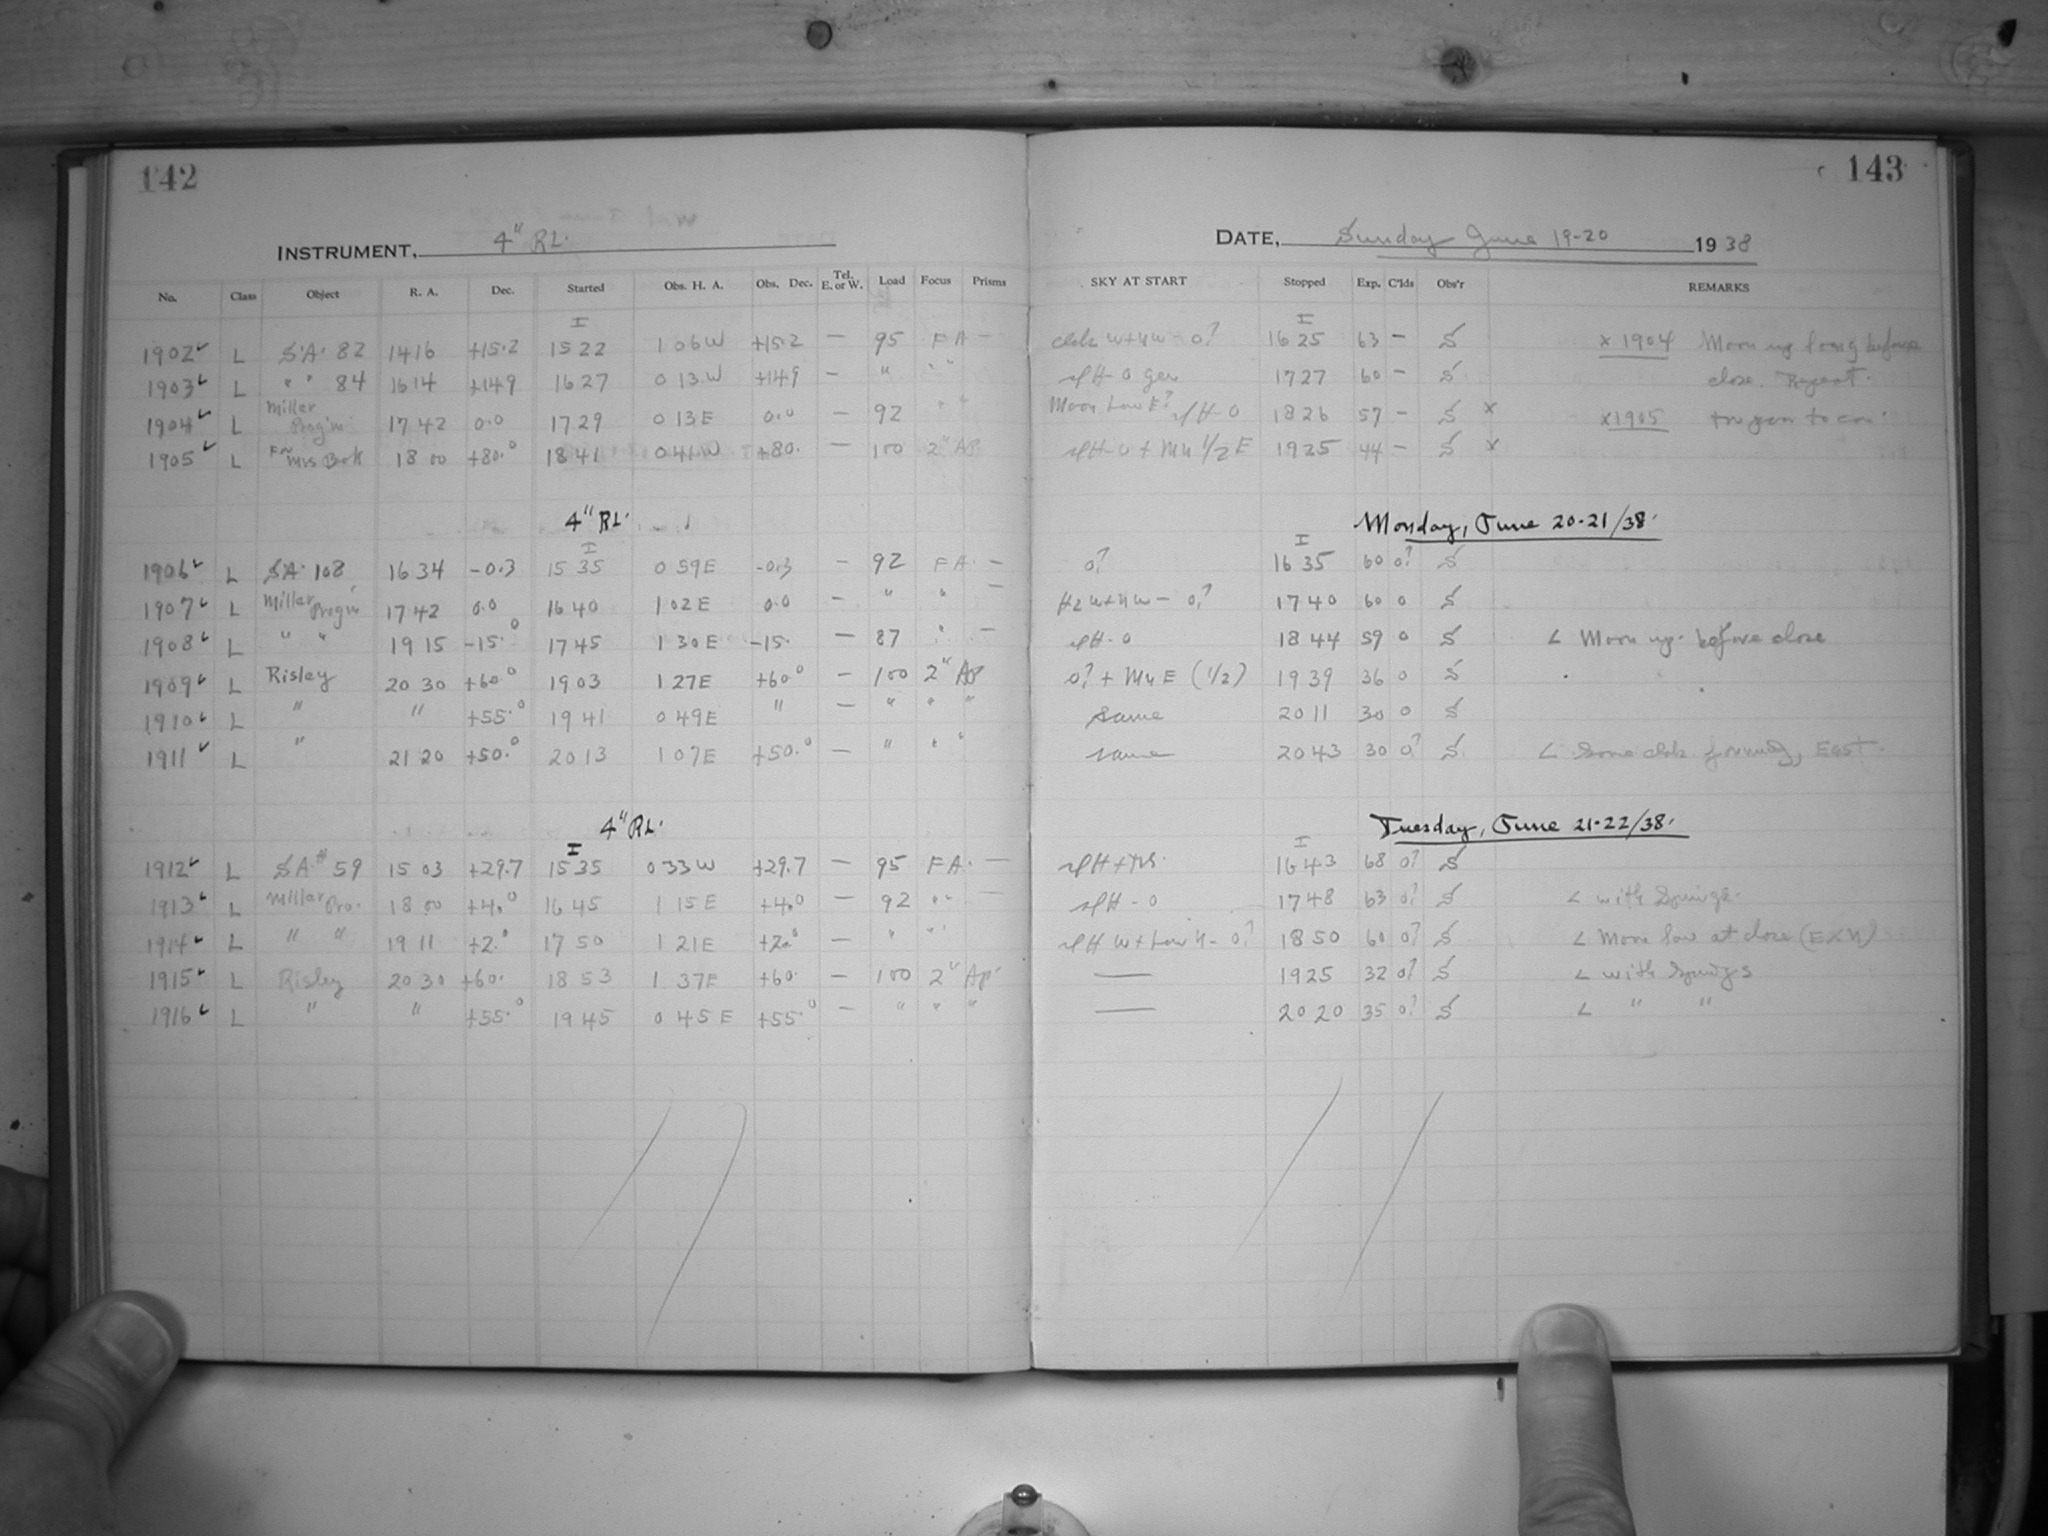 142
143
INSTRUMENT, 4" RL.
DATE, Sunday June 19-20 1938
No. Class Object R. A. Dec. Started Obs. H. A. Obs. Dec. Tel. E. or W. Load Focus Prisms SKY AT START Stopped Exp. C'lds Obs'r REMARKS
I I
1902 L S.A. 82 14 16 +15.2 15 22 1 06 W +15.2 — 95 FA — W+NW - 0? 16 25 63 — S x 1904 Moon up long before
1903 L " " 84 16 14 +14.9 16 27 0 13 W +14.9 — " " " 0 gen 17 27 60 — S close. Repeat.
1904 L Miller Prog'm 17 42 0.0 17 29 0 13 E 0.0 — 92 " " Moon Low E? 0 18 26 57 — S x x1905
1905 L For Mrs Bok 18 00 +80.° 18 41 0 41 W +80. — 100 2" Ap 1/2 E 19 25 44 — S x
4" RL. Monday, June 20-21/38.
I I
1906 L SA. 108 16 34 -0.3 15 35 0 59 E -0.3 — 92 FA. — 0? 16 35 60 0? S
1907 L Miller Prog'm 17 42 0.0 16 40 1 02 E 0.0 — " " — Hz W+NW — 0? 17 40 60 0 S
1908 L " " 19 15 -15.° 17 45 1 30 E -15. — 87 " — 0 18 44 59 0 S < Moon up. before close
1909 L Risley 20 30 +60.° 19 03 1 27 E +60.° — 100 2" Ap 0? + Mn E (1/2) 19 39 36 0 S
1910 L " " +55.° 19 41 0 49 E " — " " " same 20 11 30 0 S
1911 L " 21 20 +50.° 20 13 1 07 E +50.° — " " " same 20 43 30 0? S < Some clds. forming, East.
4" RL. Tuesday, June 21-22/38.
I I
1912 L SA.# 59 15 03 +29.7 15 35 0 33 W +29.7 — 95 FA. — 16 43 68 0? S
1913 L Miller Pro. 18 00 +4.° 16 45 1 15 E +4.° — 92 " " — 0 17 48 63 0? S < with
1914 L " " 19 11 +2.° 17 50 1 21 E +2.° — " " " W + Low N - 0? 18 50 60 0? S < Moon low at close (E x N)
1915 L Risley 20 30 +60. 18 53 1 37 E +60. — 100 2" Ap. — 19 25 32 0? S < with
1916 L " " +55.° 19 45 0 45 E +55.° — " " " — 20 20 35 0? S < " "